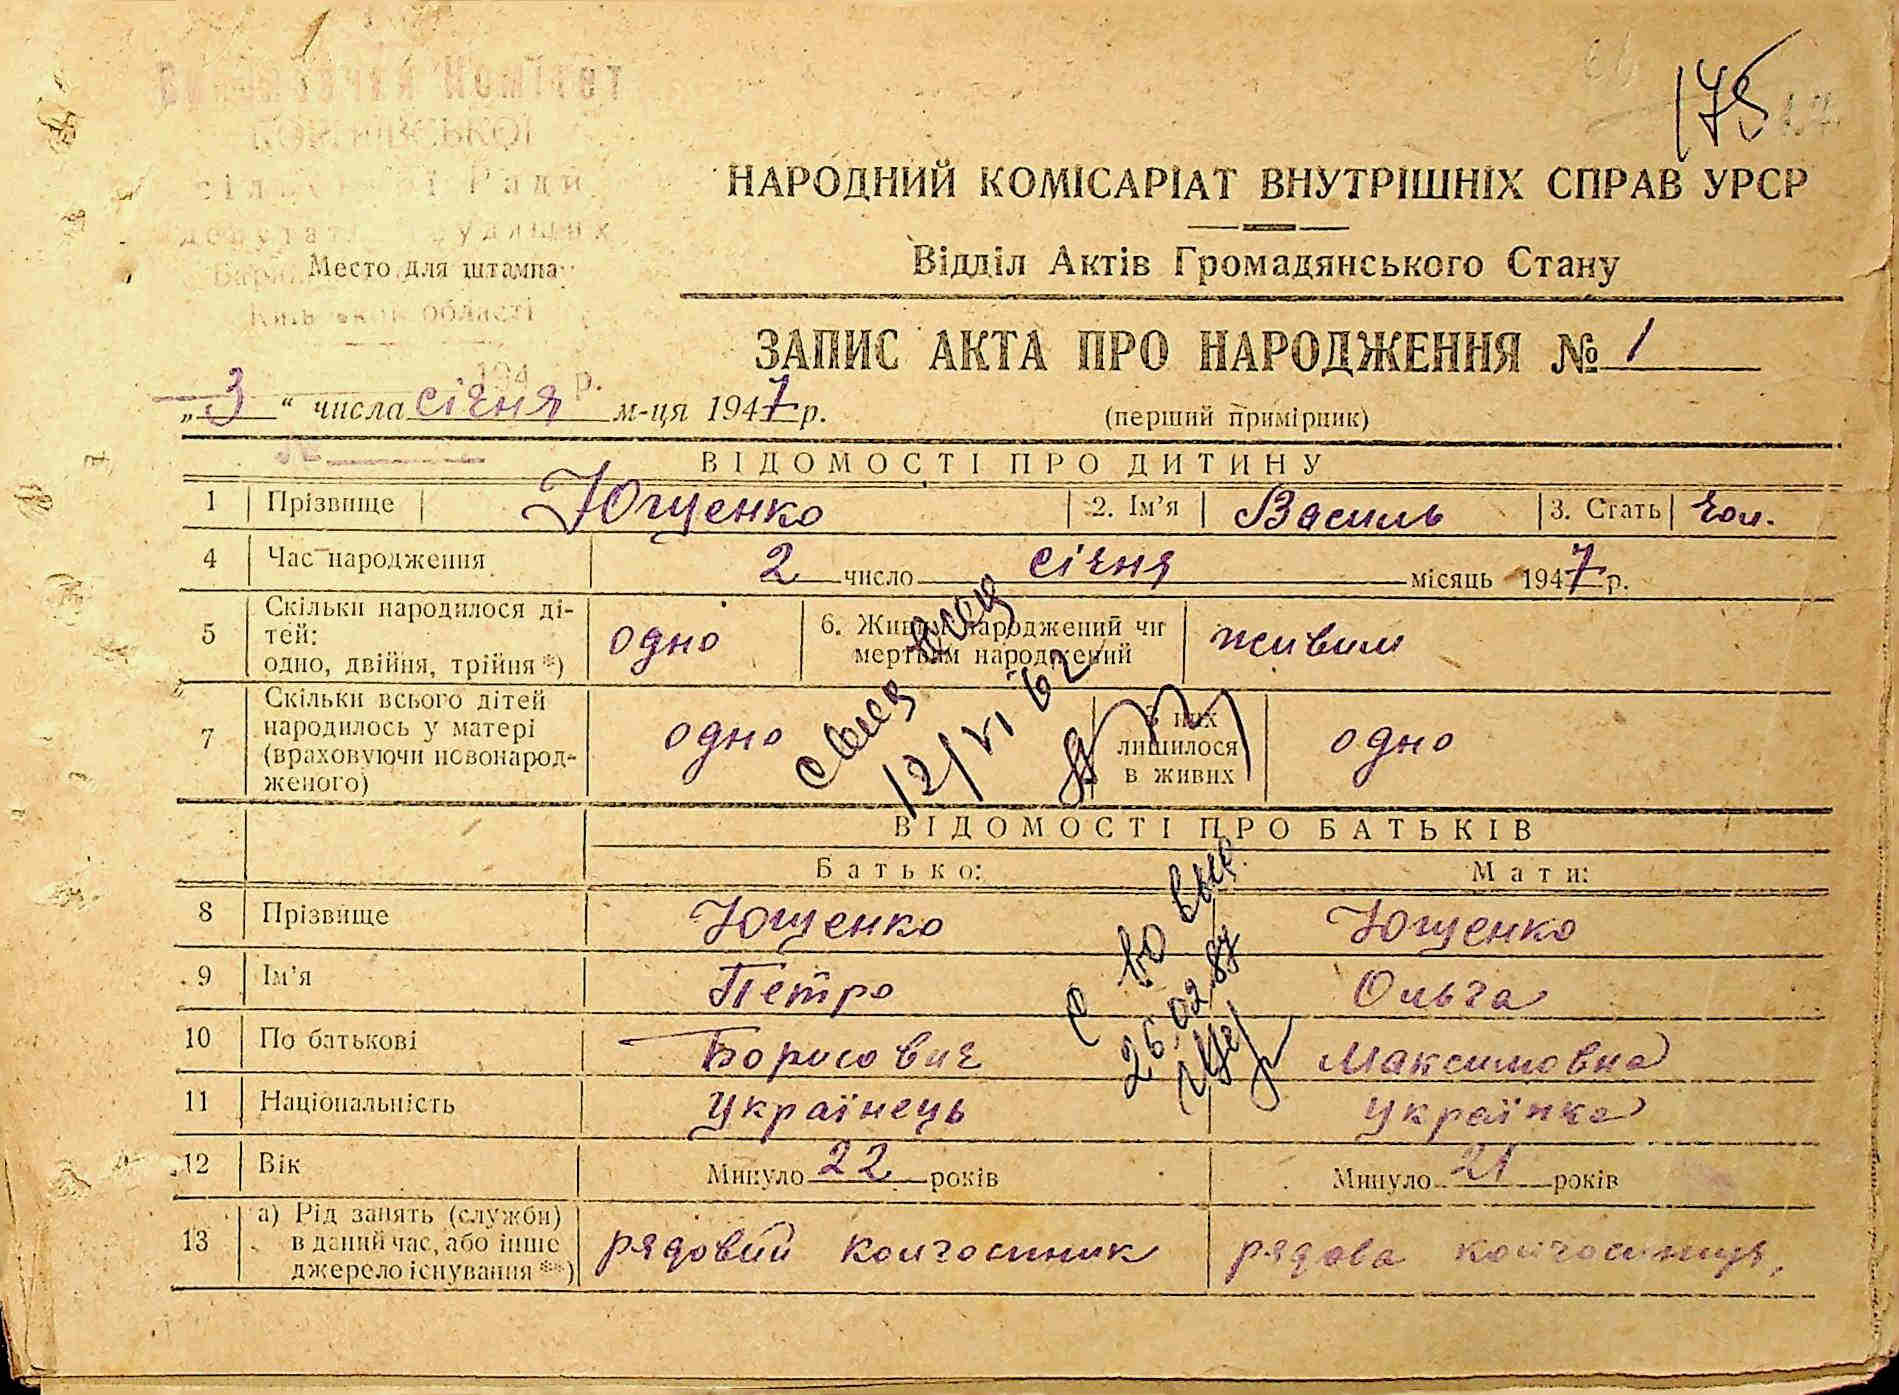 175
НАРОДНИЙ КОМІСАРІАТ ВНУТРІШНІХ СПРАВ УРСР
Відділ Актів Громадянського Стану
Ради
Место для штампа
області
194 р.
ЗАПИС АКТА ПРО НАРОДЖЕННЯ № 1
„3“ числа січня м-ця 1947 р.
(перший примірник)
ВІДОМОСТІ ПРО ДИТИНУ
1 Прізвище Ющенко 2. Ім’я Василь 3. Стать чол.
4 Час народження 2 число січня місяць 1947 р.
5 Скільки народилося ді-
тей:
одно, двійня, трійня *) одно 6. Живим народжений чи
мертвим народжений живим
7 Скільки всього дітей
народилось у матері
(враховуючи новонарод-
женого) одно З них
лишилося
в живих одно
12/VI 62
ВІДОМОСТІ ПРО БАТЬКІВ
Батько: Мати:
8 Прізвище Ющенко Ющенко
9 Ім’я Петро Ольга
10 По батькові Борисович Максимовна
26.02.87
11 Національність Українець Українка
12 Вік Минуло 22 років Минуло 21 років
13 а) Рід занять (служби)
в даний час, або інше
джерело існування **) рядовий колгоспник рядова колгоспниця,